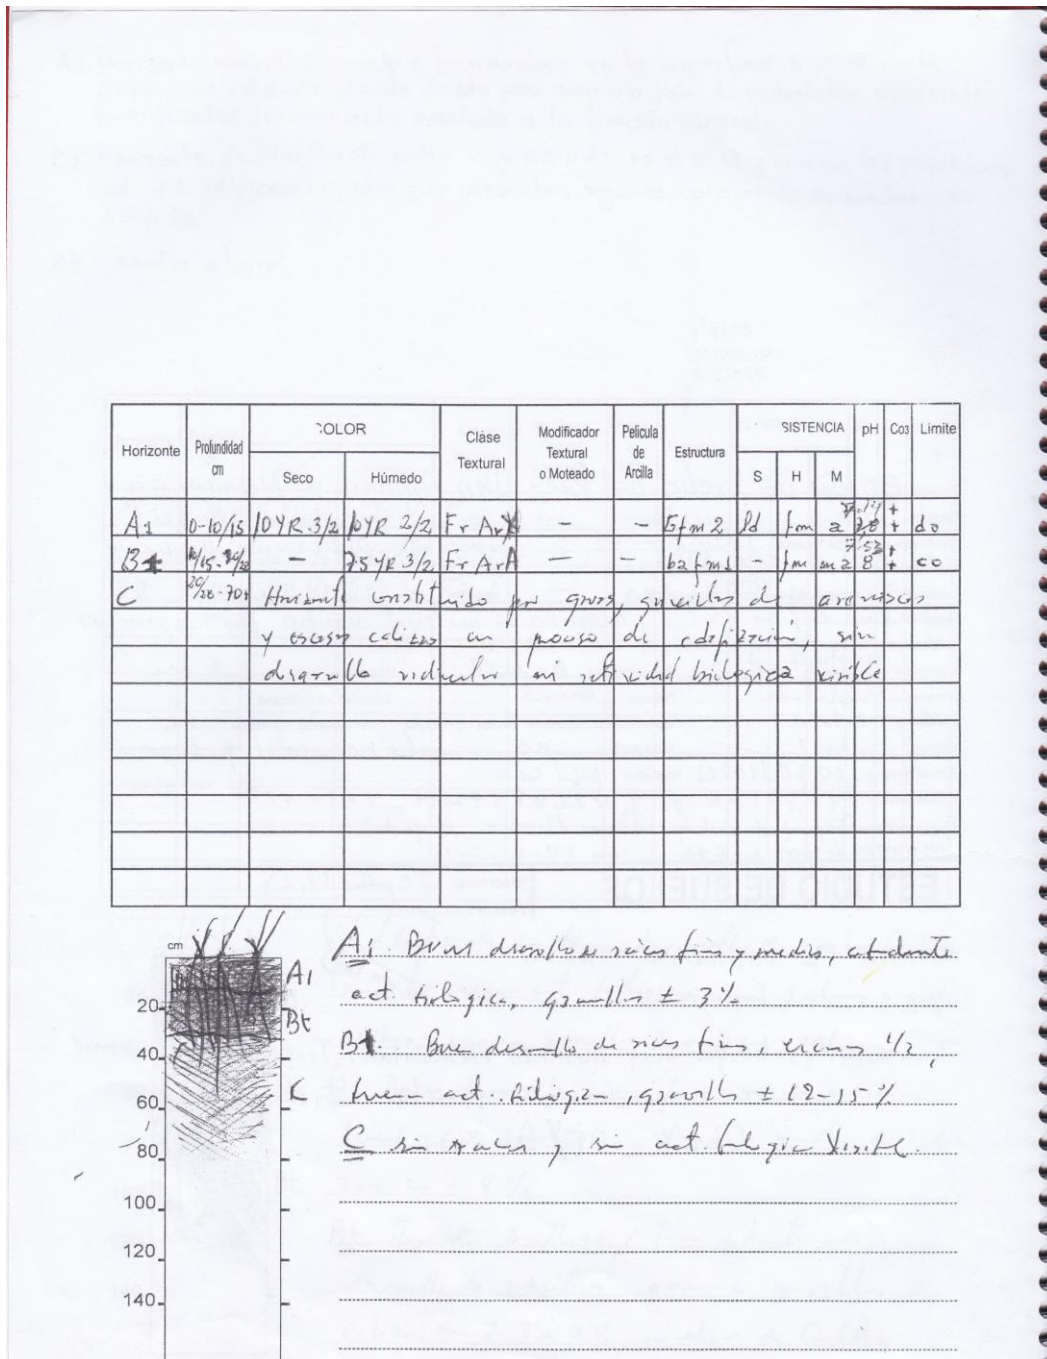 Horizonte Profundidad cm COLOR Seco Húmedo Cláse Textural Modificador Textural o Moteado Pelicula de Arcilla Estructura SISTENCIA S H M pH Co3 Limite
A1 0-10/15 10YR.3/2 10YR 2/2 Fr Ar - - Gfm2 ld fm a + do
B 10/15- - 7.5YR 3/2 Fr ArA - - b2fm1 - fm m2 7.53 8 + co
C 20/28-70+ Horizonte constituido por gravas, gravillas de areniscas
y escasas calizas en proceso de edafización, sin
desarrollo radicular ni actividad biologica visible
cm
20
40
60
80
100
120
140
A1
Bt
C
A1. Buen desarrollo de raices finas y medias, abundante
act. biologica, gravillas ± 3%
B. Buen desarrollo de raices finas, escasas 1/2,
buena act. biologica, gravillas ± 12-15%
C sin raices y sin act. biologica visible.